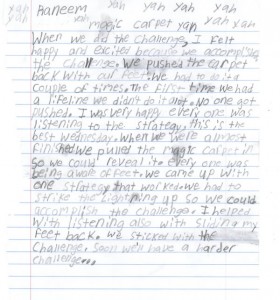 yah Haneem yah yah yah yah
yah magic carpet yah yah yah
When we did the challenge, I felt
happy and excited because we accomplise
the challenge. We pushed the carpet
back with our feet. We had to do it a
couple of times. The first time we had
a lifeline we didn't do it. No one got
pushed. I was very happy every one was
listening to the strategy. this is the
best wednesday. When we were almost
finished we pulled the magic carpet in
so we could reveal it. every one was
being aware of feet. We came up with
one strategy that worked. we had to
strike the lightning up so we could
accomplish the challenge. I helped
with listening also with sliding my
feet back. we sticked with the
challenge. Soon we'll have a harder
challenge...